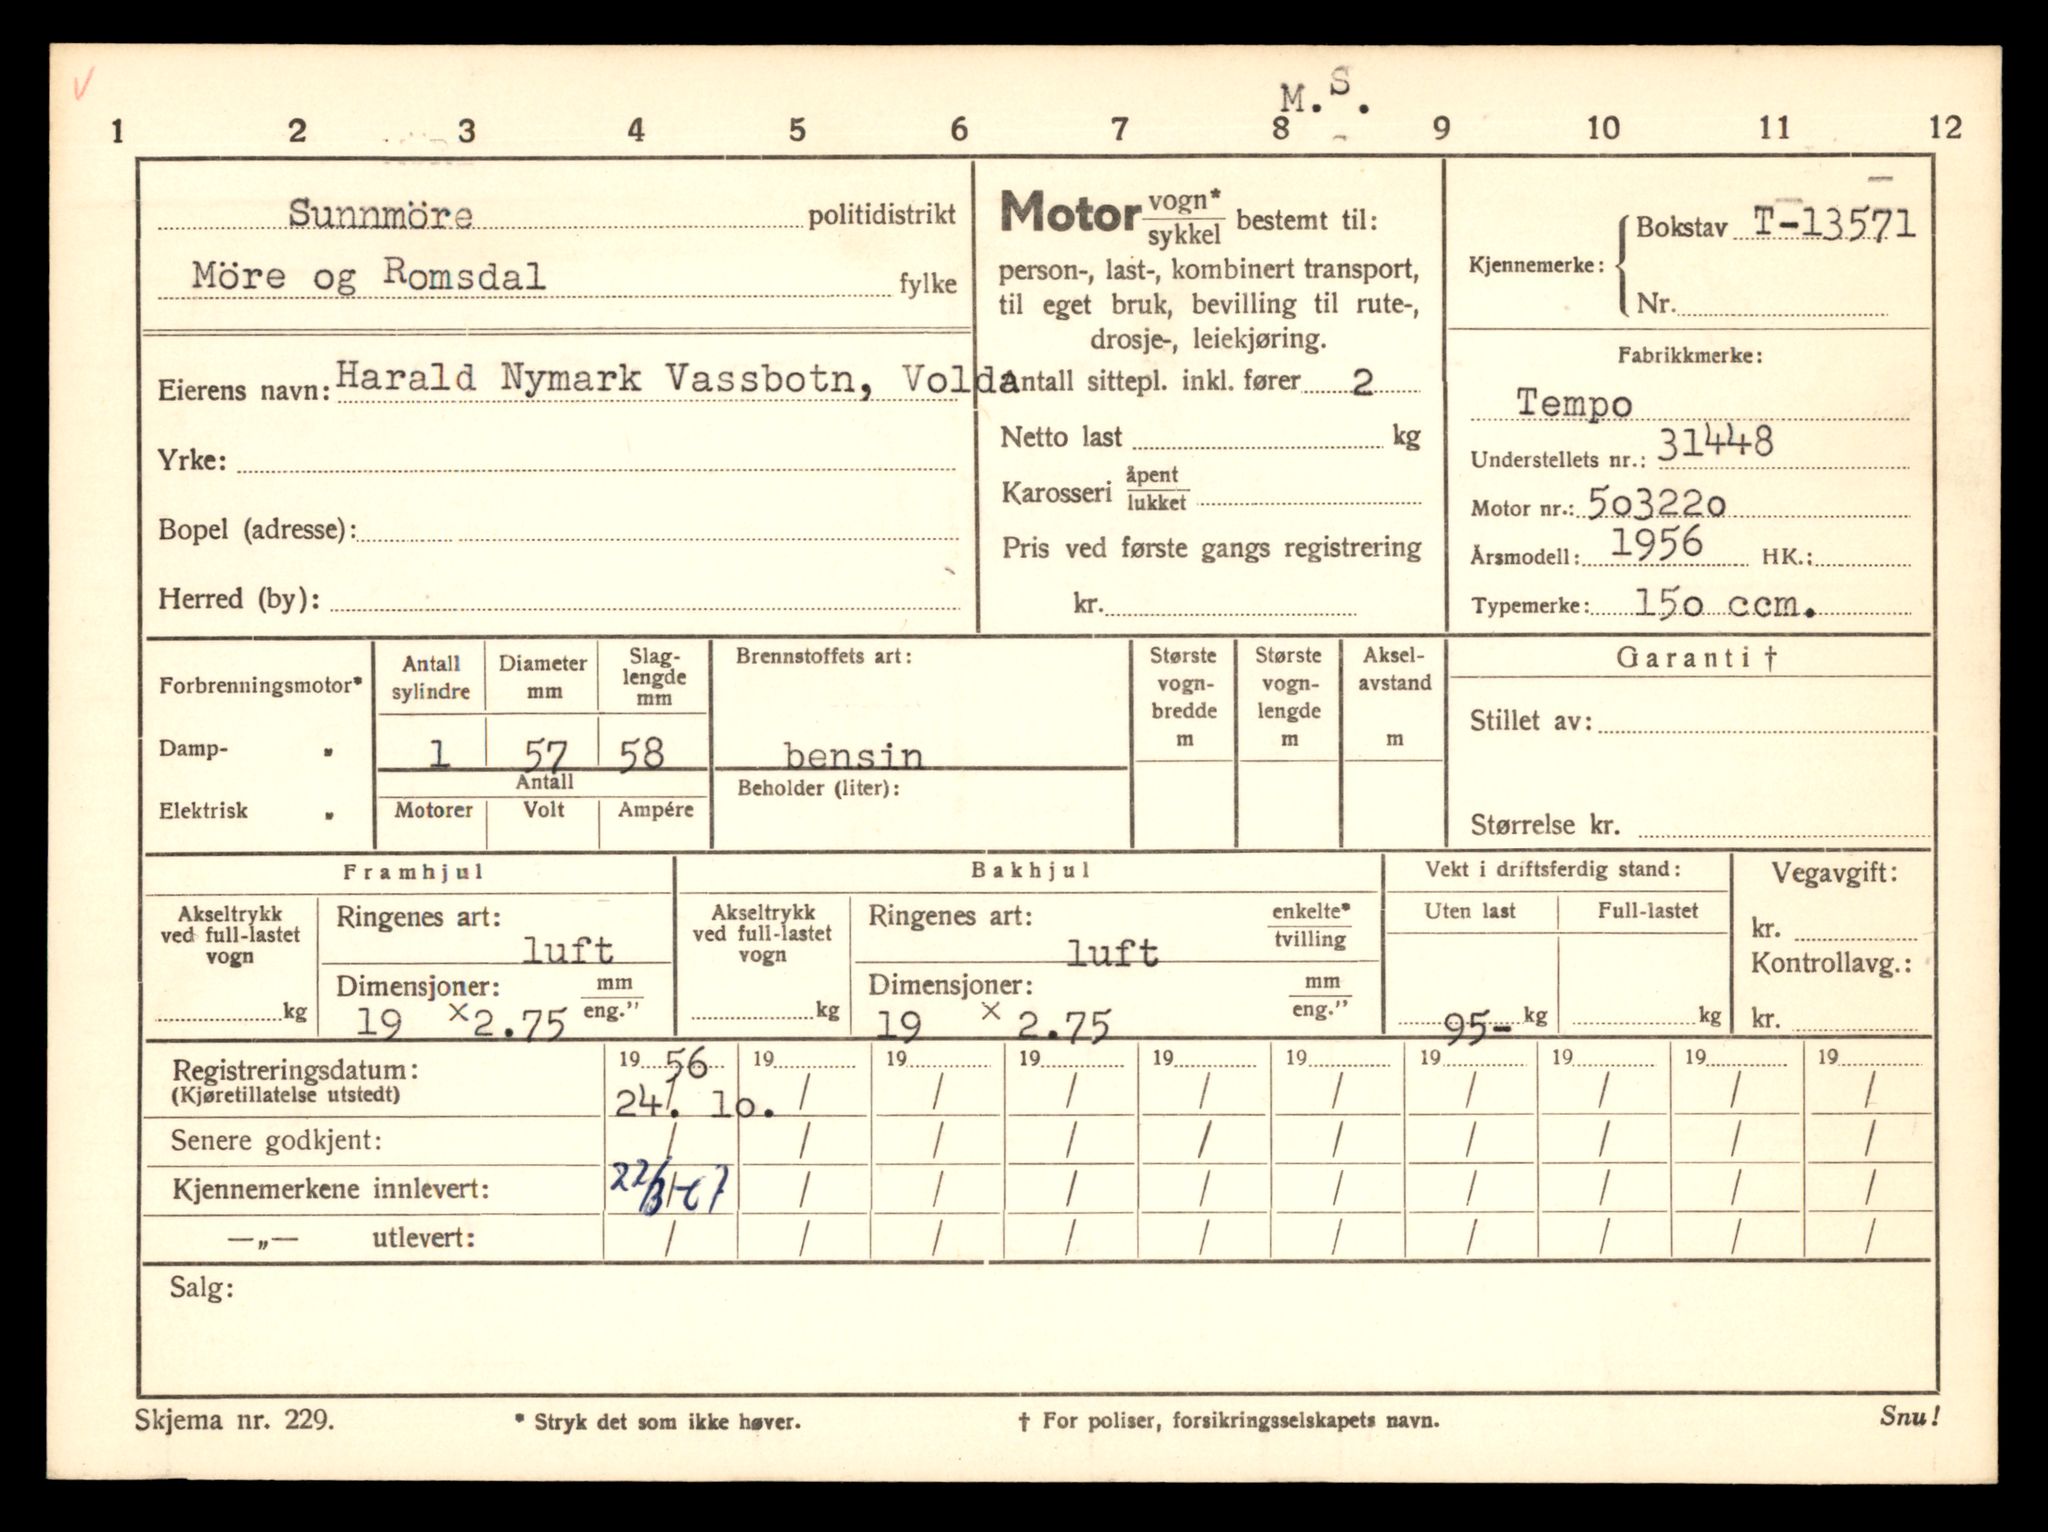 M.S.
1 2 3 4 5 6 7 8 9 10 11 12
Sunnmöre politidistrikt
Möre og Romsdal fylke
Eierens navn: Harald Nymark Vassbotn, Volda
Yrke:
Bopel (adresse):
Herred (by):
Motor vogn*/sykkel bestemt til:
person-, last-, kombinert transport,
til eget bruk, bevilling til rute-,
drosje-, leiekjøring.
Antall sittepl. inkl. fører 2
Netto last kg
Karosseri åpent/lukket
Pris ved første gangs registrering
kr.
Kjennemerke: Bokstav T-13571
Nr.
Fabrikkmerke:
Tempo
Understellets nr.: 31448
Motor nr.: 503220
Årsmodell: 1956 HK.:
Typemerke: 150 ccm.
Forbrenningsmotor*
Damp- „
Elektrisk „
Antall sylindre
Diameter mm
Slag-lengde mm
1 57 58
Antall
Motorer Volt Ampére
Brennstoffets art:
bensin
Beholder (liter):
Største vogn-bredde m
Største vogn-lengde m
Aksel-avstand m
Garanti †
Stillet av:
Størrelse kr.
Framhjul
Akseltrykk ved full-lastet vogn
kg
Ringenes art:
luft
Dimensjoner: mm/eng."
19 x 2.75
Bakhjul
Akseltrykk ved full-lastet vogn
kg
Ringenes art: enkelte*/tvilling
luft
Dimensjoner: mm/eng."
19 x 2.75
Vekt i driftsferdig stand:
Uten last Full-lastet
95- kg kg
Vegavgift:
kr.
Kontrollavg.:
kr.
Registreringsdatum: 19 56 19 19 19 19 19 19 19 19 19
(Kjøretillatelse utstedt) 24. 10. / / / / / / / / /
Senere godkjent: / / / / / / / / / /
Kjennemerkene innlevert: 22/3-67 / / / / / / / / /
—„— utlevert: / / / / / / / / / /
Salg:
Skjema nr. 229.
* Stryk det som ikke høver.
† For poliser, forsikringsselskapets navn.
Snu!